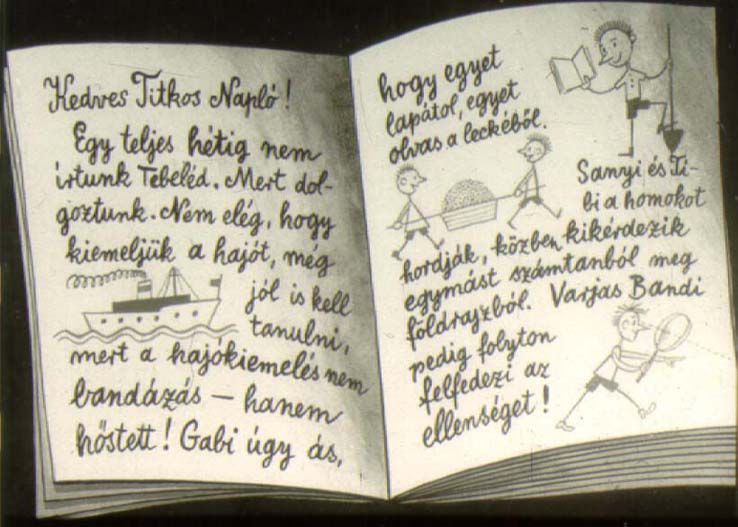 Kedves Titkos Napló!
Egy teljes hétig nem
írtunk Tebeléd. Mert dol-
goztunk. Nem elég, hogy
kiemeljük a hajót, még
jól is kell
tanulni,
mert a hajókiemelés nem
bandázás — hanem
hőstett! Gabi úgy ás,
hogy egyet
lapátol, egyet
olvas a leckéből.
Sanyi és Ti-
bi a homokot
hordják, közben kikérdezik
egymást számtanból meg
földrajzból. Varjas Bandi
pedig folyton
felfedezi az
ellenséget!